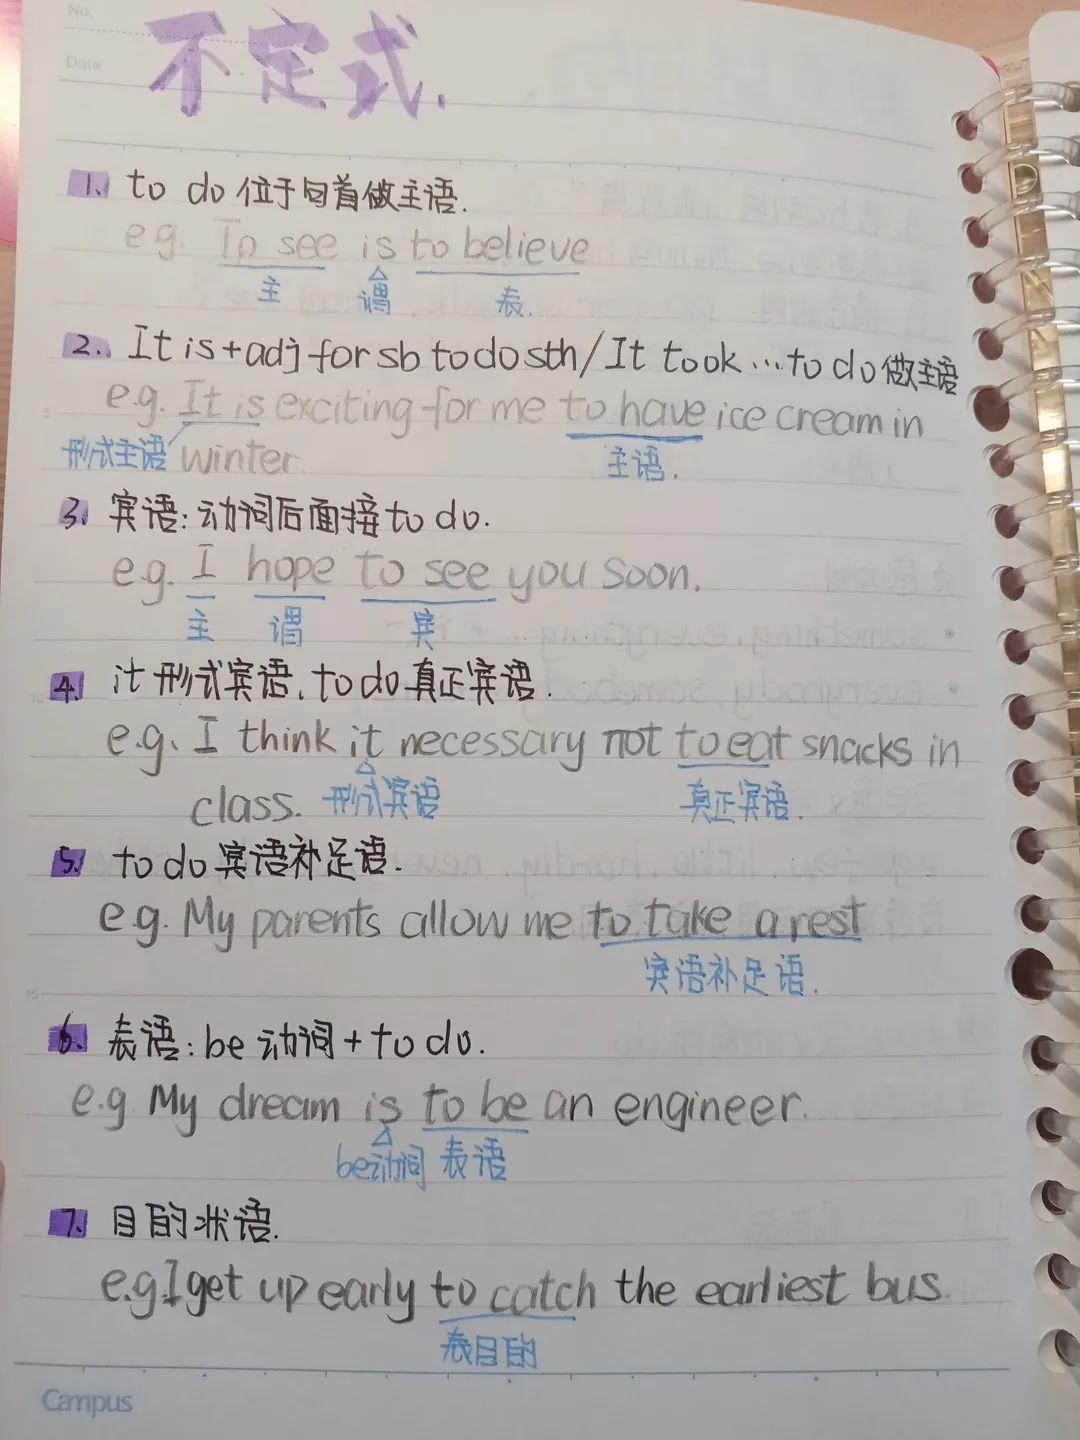 No.
Date
不定式.
1. to do 位于句首做主语.
e.g. To see is to believe
主 谓 表.
2. It is+adj for sb to do sth/It took ...to do做主语
e.g. It is exciting for me to have ice cream in
形式主语 winter. 主语.
3. 宾语:动词后面接to do.
e.g. I hope to see you soon.
主 谓 宾
4. it 形式宾语, to do 真正宾语.
e.g. I think it necessary not to eat snacks in
class. 形式宾语 真正宾语.
5. to do 宾语补足语.
e.g. My parents allow me to take a rest
宾语补足语.
6. 表语:be动词+to do.
e.g. My dream is to be an engineer.
be动词 表语
7. 目的状语.
e.g.I get up early to catch the earliest bus.
表目的
Campus